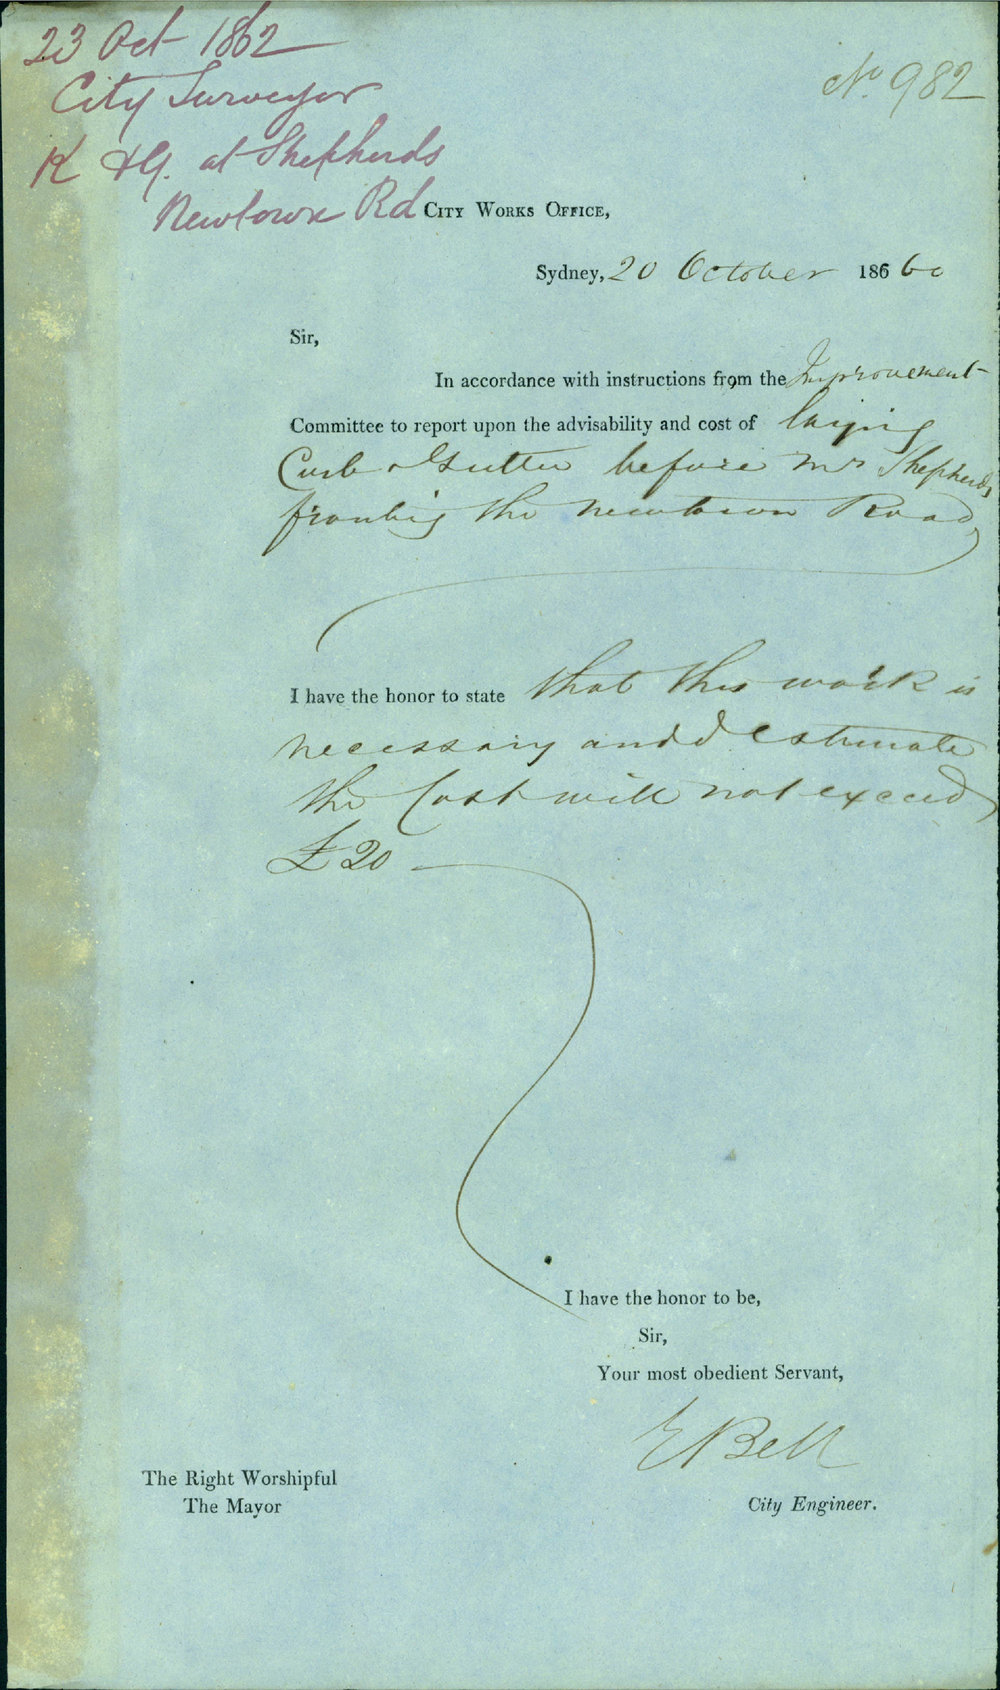 23 Oct 1862
City Surveyor
K & G. at Shepherds
Newtown Rd
No 982
City Works Office,
Sydney, 20 October 186 60
Sir,
In accordance with instructions from the Improvement
Committee to report upon the advisability and cost of laying
Curb & Gutter before Mr Shepherds
fronting the Newtown Road,
I have the honor to state that this work is
necessary and I estimate
the Cost will not exceed
£20
I have the honor to be,
Sir,
Your most obedient Servant,
E Bell
The Right Worshipful
The Mayor
City Engineer.